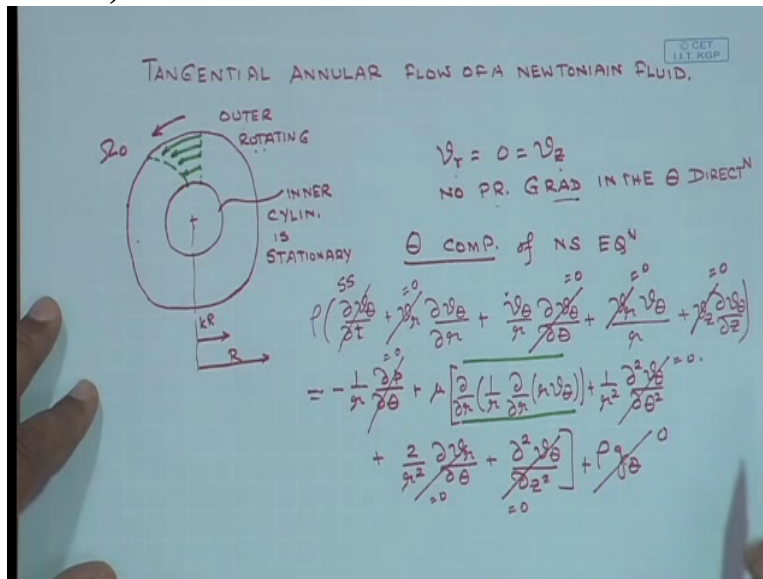 © CET
I.I.T. KGP
TANGENTIAL ANNULAR FLOW OF A NEWTONIAIN FLUID.
OUTER
ROTATING
Ω₀
INNER
CYLIN.
IS
STATIONARY
kR
R
𝑣r = 0 = 𝑣z
NO PR. GRAD IN THE θ DIRECTᴺ
θ COMP. of NS EQᴺ
ρ(∂𝑣θ/∂t + 𝑣r ∂𝑣θ/∂r + 𝑣θ/r ∂𝑣θ/∂θ + 𝑣r𝑣θ/r + 𝑣z ∂𝑣θ/∂z) SS =0 =0 =0 =0
= - 1/r ∂p/∂θ + μ[∂/∂r(1/r ∂/∂r(r𝑣θ)) + 1/r² ∂²𝑣θ/∂θ² =0 =0.
+ 2/r² ∂𝑣r/∂θ + ∂²𝑣θ/∂z²] + ρgθ =0 =0 0